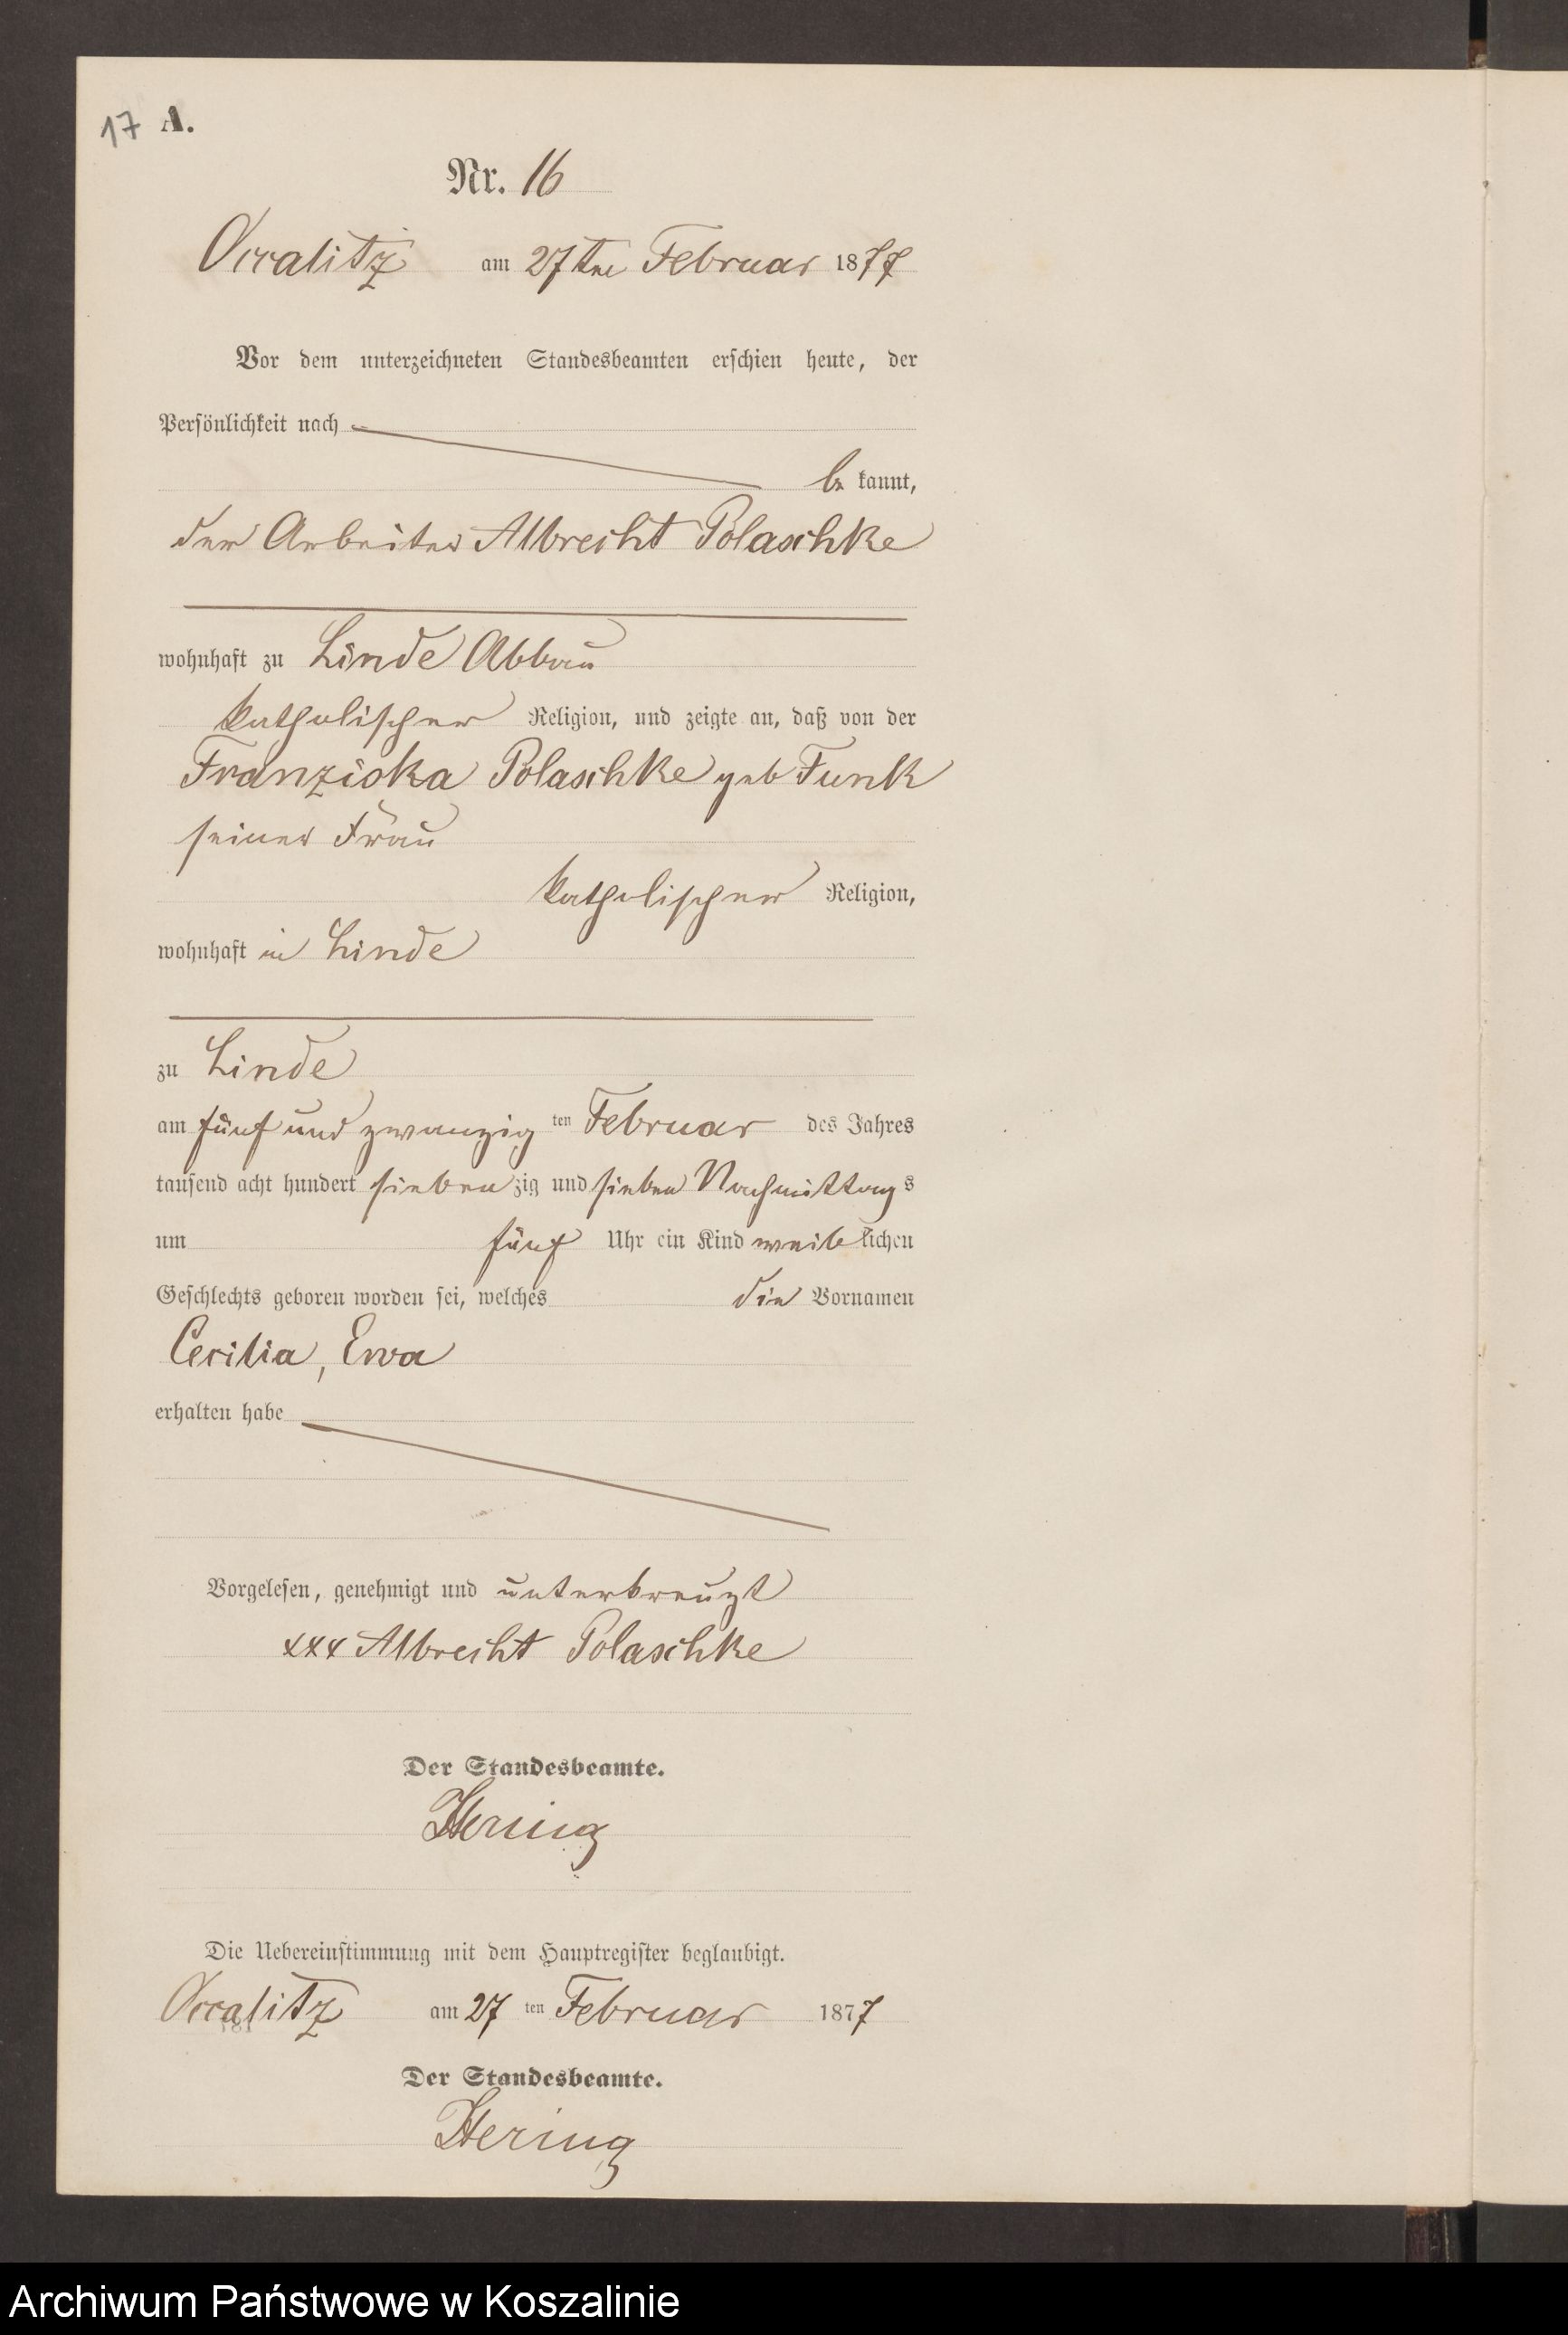 17 A.
Nr. 16
Occalitz am 27ten Februar 1877
Vor dem unterzeichneten Standesbeamten erschien heute, der
Persönlichkeit nach
be kannt,
der Arbeiter Albrecht Polaschke
wohnhaft zu Linde Abbau
katholischer Religion, und zeigte an, daß von der
Franziska Polaschke geb Funk
seiner Frau
katholischer Religion,
wohnhaft in Linde
zu Linde
am fünf und zwanzig ten Februar des Jahres
tausend acht hundert sieben zig und sieben Nachmittag s
um fünf Uhr ein Kind weib lichen
Geschlechts geboren worden sei, welches die Vornamen
Cecilia, Ewa
erhalten habe
Vorgelesen, genehmigt und unterkreuzt
xxx Albrecht Polaschke
Der Standesbeamte.
Hering
Die Uebereinstimmung mit dem Hauptregister beglaubigt.
Occalitz am 27 ten Februar 1877
Der Standesbeamte.
Hering
Archiwum Państwowe w Koszalinie